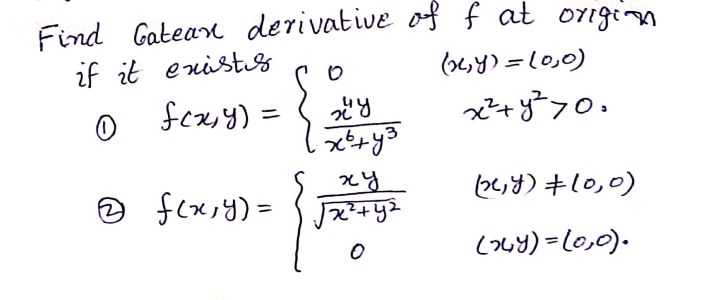 Find Gateaux derivative of f at origin
if it exists
① f(x,y) = { 0 (x,y) = (0,0)
x⁴y / x⁶+y³ x²+y²>0.
② f(x,y) = { xy / √x²+y² (x,y) ≠ (0,0)
0 (x,y) = (0,0).